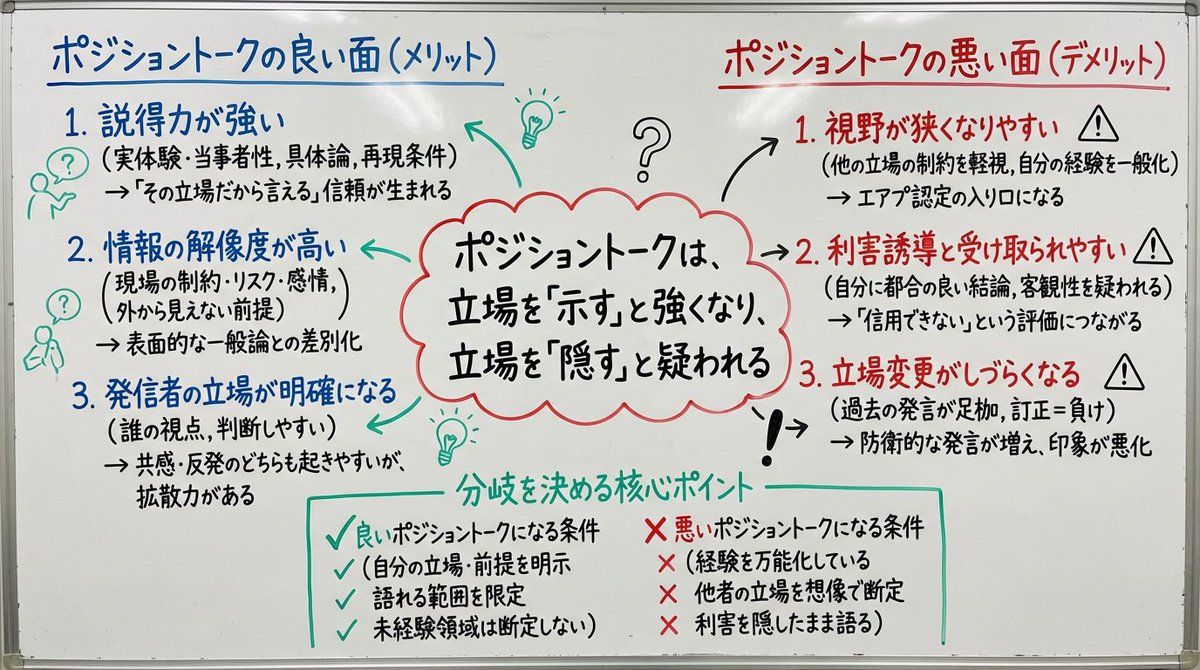 ポジショントークの良い面(メリット)
1. 説得力が強い
(実体験・当事者性,具体論,再現条件)
→「その立場だから言える」信頼が生まれる
2. 情報の解像度が高い
(現場の制約・リスク・感情,
外から見えない前提)
→ 表面的な一般論との差別化
3. 発信者の立場が明確になる
(誰の視点,判断しやすい)
→ 共感・反発のどちらも起きやすいが、
拡散力がある
?
?
?
ポジショントークは、
立場を「示す」と強くなり、
立場を「隠す」と疑われる
!
ポジショントークの悪い面(デメリット)
1. 視野が狭くなりやすい
(他の立場の制約を軽視,自分の経験を一般化)
→ エアプ認定の入り口になる
2. 利害誘導と受け取られやすい
(自分に都合の良い結論,客観性を疑われる)
→「信用できない」という評価につながる
3. 立場変更がしづらくなる
(過去の発言が足枷,訂正=負け)
→ 防衛的な発言が増え、印象が悪化
分岐を決める核心ポイント
✓良いポジショントークになる条件
✓ (自分の立場・前提を明示
✓ 語れる範囲を限定
✓ 未経験領域は断定しない)
✕悪いポジショントークになる条件
✕ (経験を万能化している
✕ 他者の立場を想像で断定
✕ 利害を隠したまま語る)